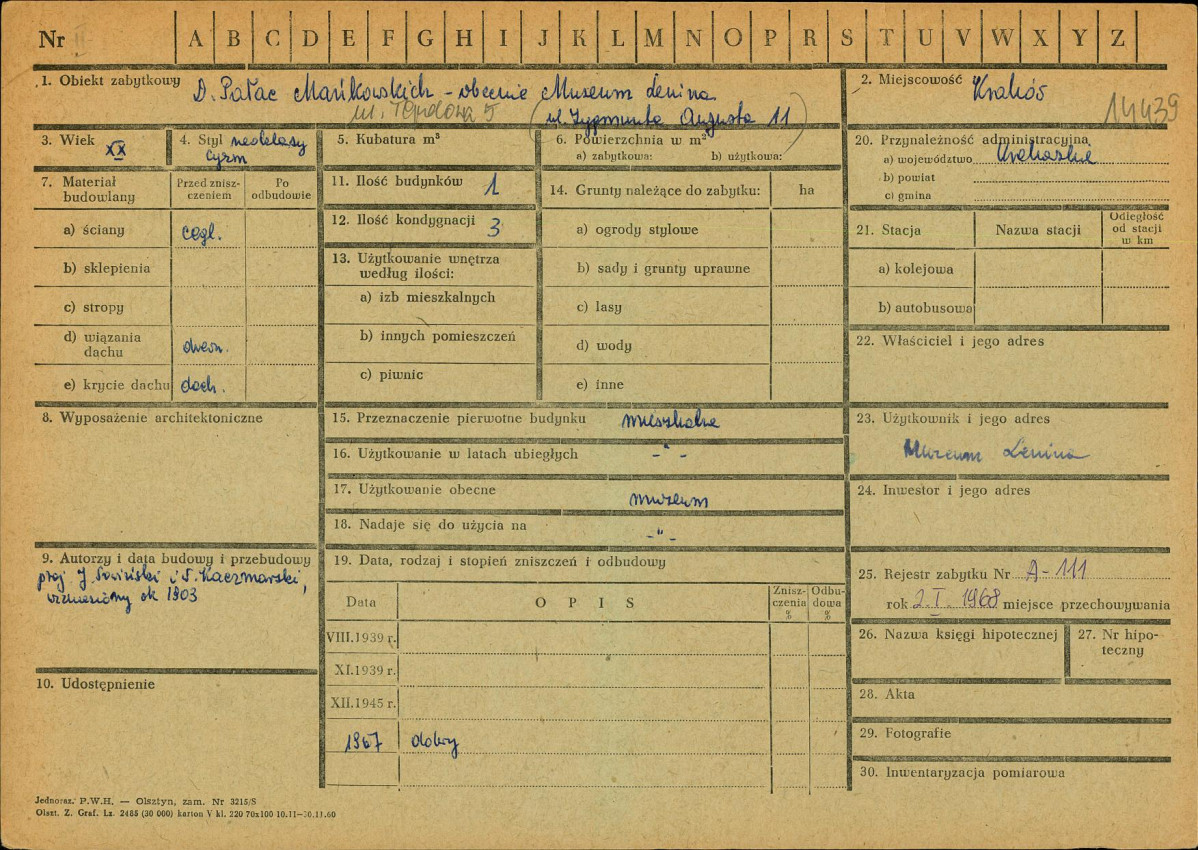 Nr
A B C D E F G H I J K L M N O P R S T U V W X Y Z
1. Obiekt zabytkowy D. Pałac Mańkowskich - obecnie Muzeum Lenina
ul. Topolowa 5 (ul. Zygmunta Augusta 11)
2. Miejscowość Kraków
14439
3. Wiek XX
4. Styl neoklasy
cyzm
5. Kubatura m³
6. Powierzchnia w m²
a) zabytkowa: b) użytkowa:
7. Materiał
budowlany
Przed znisz-
czeniem
Po
odbudowie
a) ściany cegl.
b) sklepienia
c) stropy
d) wiązania
dachu drewn.
e) krycie dachu dach.
8. Wyposażenie architektoniczne
9. Autorzy i data budowy i przebudowy
proj. J. Sowiński i T. Kaczmarski,
wzniesiony ok 1903
10. Udostępnienie
11. Ilość budynków 1
12. Ilość kondygnacji 3
13. Użytkowanie wnętrza
według ilości:
a) izb mieszkalnych
b) innych pomieszczeń
c) piwnic
14. Grunty należące do zabytku: ha
a) ogrody stylowe
b) sady i grunty uprawne
c) lasy
d) wody
e) inne
15. Przeznaczenie pierwotne budynku mieszkalne
16. Użytkowanie w latach ubiegłych -"-
17. Użytkowanie obecne muzeum
18. Nadaje się do użycia na -"-
19. Data, rodzaj i stopień zniszczeń i odbudowy
Data O P I S
Znisz-
czenia
%
Odbu-
dowa
%
VIII.1939 r.
XI.1939 r.
XII.1945 r.
1967 dobry
20. Przynależność administracyjna
a) województwo krakowskie
b) powiat
c) gmina
21. Stacja Nazwa stacji
Odległość
od stacji
w km
a) kolejowa
b) autobusowa
22. Właściciel i jego adres
23. Użytkownik i jego adres
Muzeum Lenina
24. Inwestor i jego adres
25. Rejestr zabytku Nr A-111
rok 2.I.1968 miejsce przechowywania
26. Nazwa księgi hipotecznej
27. Nr hipo-
teczny
28. Akta
29. Fotografie
30. Inwentaryzacja pomiarowa
Jednoraz. P.W.H. — Olsztyn, zam. Nr 3215/S
Olszt. Z. Graf. Lz. 2485 (30 000) karton V kl. 220 70x100 10.11—30.11.60